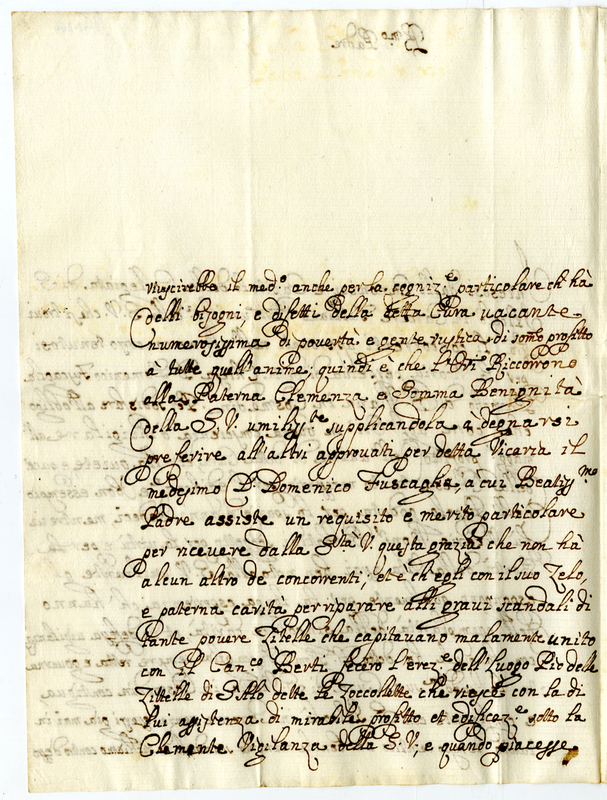 riuscirebbe il med.º anche per la cogniz.e particolare ch'hà
delli bisogni, e difetti della detta Cura vacante
numerosissima di povertà e gente rustica di somo profitto
à tutte quell'anime, quindi è che l'Ori Riccorrono
alla Paterna Clemenza e Somma Benignità
della S. V. umiliss.te supplicandola à degnarsi
preferire all'altri approvati per detta Vicaria il
medesimo D. Domenico Fuscaglia, a cui Beatiss.mo
Padre assiste un requisito e merito particolare
per ricevere dalla S.tà V. questa grazia che non hà
alcun altro de concorrenti, et è ch'egli con il suo Zelo,
e paterna carità per riparare alli gravi scandali di
tante povere Zitelle che capitavano malamente unito
con il Can.co Berti fecero l'erez.e dell'Luogo Pio delle
Zittelle di dette le Zoccollette che riesce con la di
lui assistenza di mirabile profitto et edificaz.e sotto la
Clemente Vigilanza della S. V., e quando piacesse